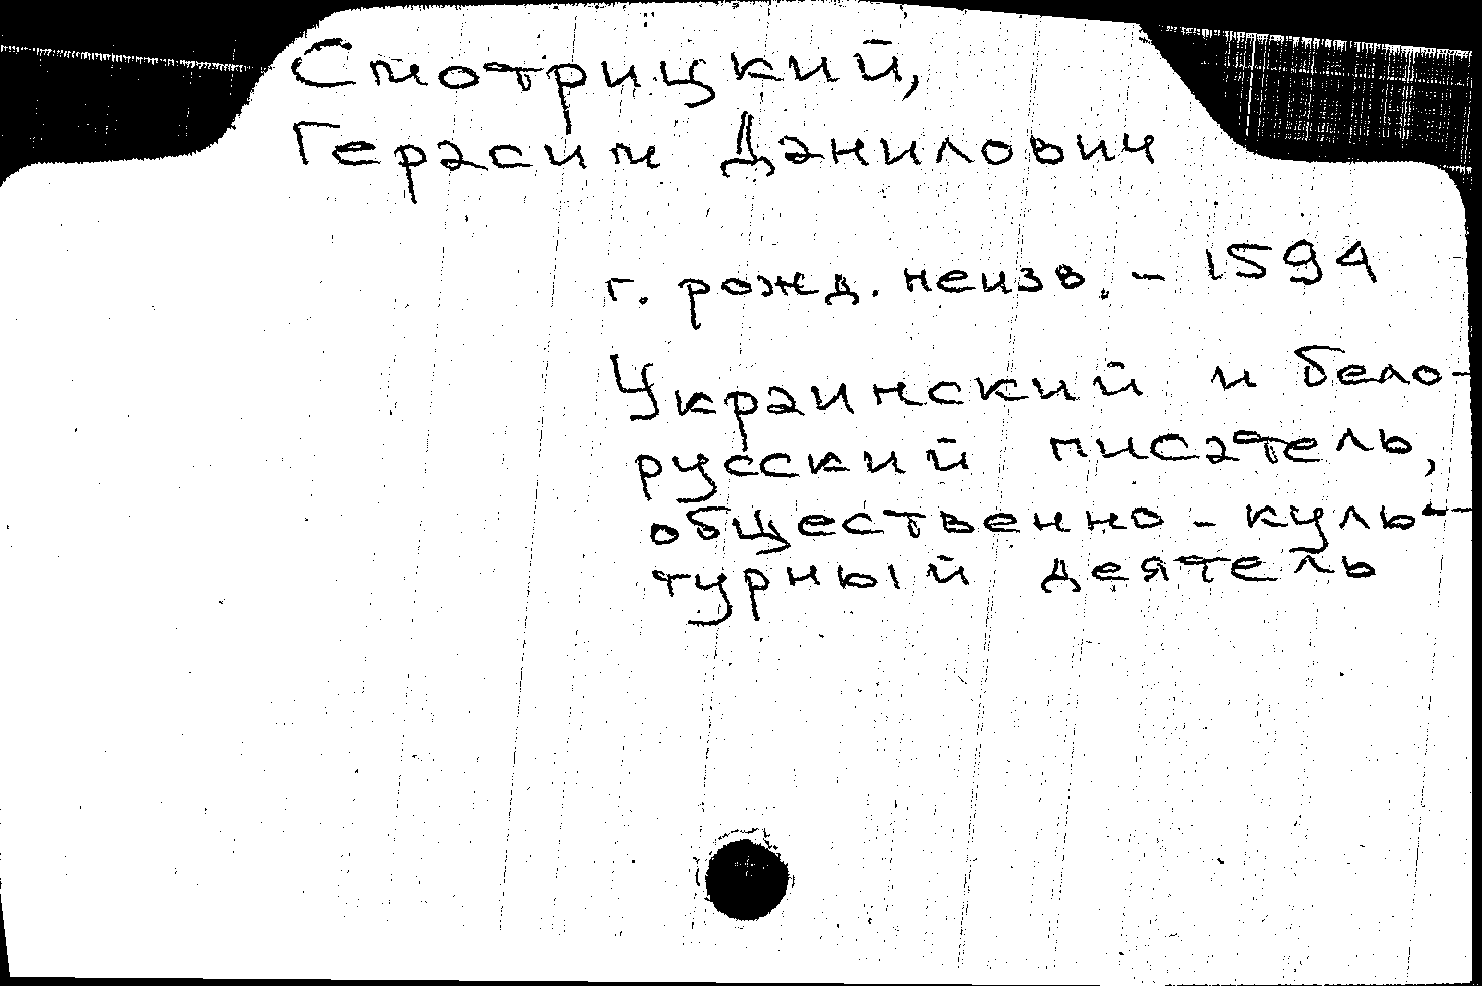 Смотрицкий,
Герасим Данилович
г. рожд. неизв. - 1594
Украинский и бело-
русский писатель,
общественно - куль-
турный деятель